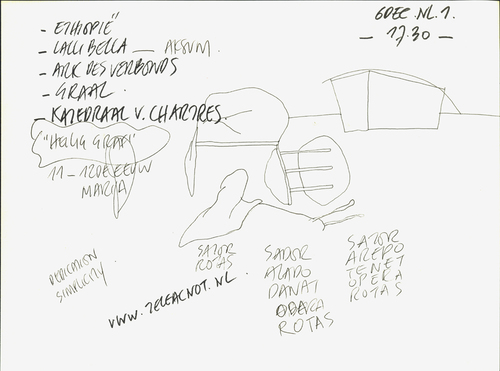 - ETHIOPIË
- LALLIBELLA — AKSUM.
- ARK DES VERBONDS
- GRAAL.
- KATEDRAAL V. CHARTRES.
"HEILIG GRAF"
11 - 12DE EEUW
MARIA
6 DEC. NL.1.
— 17.30 —
SIMPLICITY.
SATOR
ROTAS
SADOR
ALADO
DANAT
ROTAS
SATOR
AREPO
TENET
OPERA
ROTAS
www.TELEACNOT.NL.